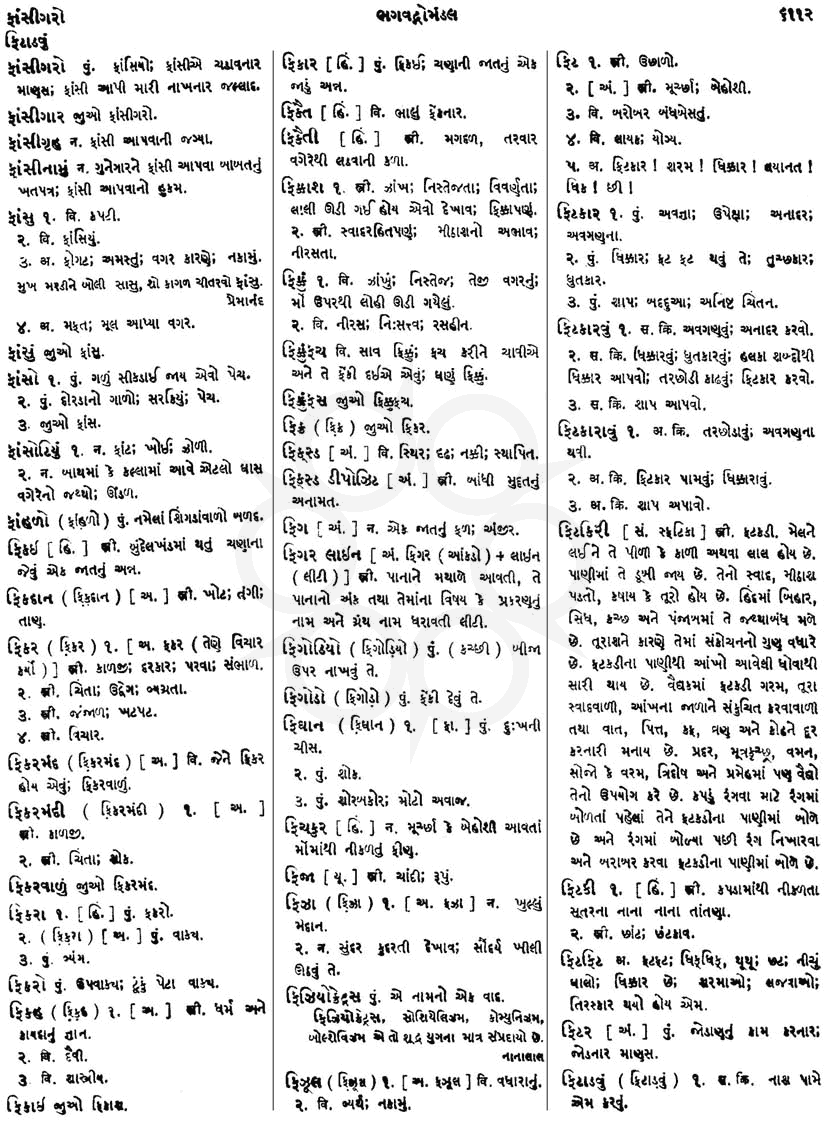 ફાંસીગરો
ભગવદ્ગોમંડલ
૬૧૧૨
ફિટાડવું
ફાંસીગરો પું. ફાંસિયો; ફાંસીએ ચઢાવનાર
માણસ; ફાંસી આપી મારી નાખનાર જલ્લાદ.
ફાંસીગાર જુઓ ફાંસીગરો.
ફાંસીગૃહ ન. ફાંસી આપવાની જગ્યા.
ફાંસીનામું ન. ગુનેગારને ફાંસી આપવા બાબતનું
ખતપત્ર; ફાંસી આપવાનો હુકમ.
ફાંસુ ૧. વિ. કપટી.
૨. વિ. ફાંસિયું.
૩. અ. ફોગટ; અમસ્તું; વગર કારણે; નકામું.
મુખ મરડીને બોલી સાસુ, શો કાગળ ચીતરવો ફાંસુ.
પ્રેમાનંદ
૪. અ. મફત; મૂલ આપ્યા વગર.
ફાંસું જુઓ ફાંસુ.
ફાંસો ૧. પું. ગળું સીકડાઈ જાય એવો પેચ.
૨. પું. દોરડાનો ગાળો; સરકિયું; પેચ.
૩. જુઓ ફાંસ.
ફાંસોટિયું ૧. ન. ફાંટ; ખોઈ; ઝોળી.
૨. ન. બાથમાં કે કલ્લામાં આવે એટલો ઘાસ
વગેરેનો જથ્થો; ઊંડળ.
ફાંહળો (ફાંહળો) પું. નમેલાં શિંગડાંવાળો બળદ.
ફિકઈ [ હિં. ] સ્ત્રી. બુંદેલખંડમાં થતું ચણાના
જેવું એક જાતનું અન્ન.
ફિકદાન (ફિક્દાન) [ અ. ] સ્ત્રી. ખોટ; તંગી;
તાણ.
ફિકર (ફિકર) ૧. [ અ. ફકર (તેણે વિચાર
કર્યો) ] સ્ત્રી. કાળજી; દરકાર; પરવા; સંભાળ.
૨. સ્ત્રી. ચિંતા; ઉદ્વેગ; વ્યગ્રતા.
૩. સ્ત્રી. જંજાળ; ખટપટ.
૪. સ્ત્રી. વિચાર.
ફિકરમંદ (ફિકરમંદ) [ અ. ] વિ. જેને ફિકર
હોય એવું; ફિકરવાળું.
ફિકરમંદી (ફિકરમંદી) ૧. [ અ. ]
સ્ત્રી. કાળજી.
૨. સ્ત્રી. ચિંતા; શોક.
ફિકરવાળું જુઓ ફિકરમંદ.
ફિકરા ૧. [ હિં. ] પું. ફકરો.
૨. (ફિક્રા) [ અ. ] પું. વાક્ય.
૩. પું. વ્યંગ.
ફિકરો પું. ઉપવાક્ય; ટૂંકું પેટા વાક્ય.
ફિકહ (ફિક્હ) ૧. [ અ. ] સ્ત્રી. ધર્મ અને
કાયદાનું જ્ઞાન.
૨. વિ. દૈવી.
૩. વિ. શાસ્ત્રીય.
ફિકાઈ જુઓ ફિકાશ.
ફિકાર [ હિં. ] પું. ફિકઈ; ચણાની જાતનું એક
જાડું અન્ન.
ફિકૈત [ હિં. ] વિ. ભાલું ફેંકનાર.
ફિકૈતી [ હિં. ] સ્ત્રી. મગદળ, તરવાર
વગેરેથી લડવાની કળા.
ફિક્કાશ ૧. સ્ત્રી. ઝાંખ; નિસ્તેજતા; વિવર્ણતા;
લાલી ઊડી ગઈ હોય એવો દેખાવ; ફિક્કાપણું.
૨. સ્ત્રી. સ્વાદરહિતપણું; મીઠાશનો અભાવ;
નીરસતા.
ફિક્કું ૧. વિ. ઝાંખું; નિસ્તેજ; તેજી વગરનું;
મોં ઉપરથી લોહી ઊડી ગયેલું.
૨. વિ. નીરસ; નિઃસત્ત્વ; રસહીન.
ફિક્કુંફચ વિ. સાવ ફિક્કું; ફચ કરીને ચાવીએ
અને તે ફેંકી દઈએ એવું; ઘણું ફિક્કું.
ફિક્કુંફસ જુઓ ફિક્કુંફચ.
ફિક્ર (ફિક્ર) જુઓ ફિકર.
ફિક્સ્ડ [ અં. ] વિ. સ્થિર; દૃઢ; નક્કી; સ્થાપિત.
ફિક્સ્ડ ડીપોઝિટ [ અં. ] સ્ત્રી. બાંધી મુદ્દતનું
અનામત.
ફિગ [ અં. ] ન. એક જાતનું ફળ; અંજીર.
ફિગર લાઈન [ અં. ફિગર (આંકડો) + લાઈન
(લીટી) ] સ્ત્રી. પાનાને મથાળે આવતી, તે
પાનાનો અંક તથા તેમાંના વિષય કે પ્રકરણનું
નામ અને ગ્રંથ નામ ધરાવતી લીટી.
ફિગોડિયો (ફિગોડ઼િયો) પું. (કચ્છી) બીજા
ઉપર નાખવું તે.
ફિગોડો (ફિગોડ઼ો) પું. ફેંકી દેવું તે.
ફિઘાન (ફિઘાન) ૧. [ ફા. ] પું. દુઃખની
ચીસ.
૨. પું. શોક.
૩. પું. શોરબકોર; મોટો અવાજ.
ફિચકુર [ હિં. ] ન. મૂર્ચ્છા કે બેહોશી આવતાં
મોંમાંથી નીકળતું ફીણ.
ફિજા [ યૂ. ] સ્ત્રી. ચાંદી; રૂપું.
ફિઝા (ફિઝા) ૧. [ અ. ફઝા ] ન. ખુલ્લું
મેદાન.
૨. ન. સુંદર કુદરતી દેખાવ; સૌંદર્ય ખીલી
ઊઠવું તે.
ફિઝિયોક્રેટ્સ પું. એ નામનો એક વાદ.
ફિઝિયોક્રેટ્સ, સોશિયેલિઝમ, કોમ્યુનિઝમ,
બોલ્શેવિઝમ એ તો શૂદ્ર યુગના માત્ર સંપ્રદાયો છે.
નાનાલાલ
ફિઝૂલ (ફિઝૂલ) ૧. [ અ. ફઝૂલ ] વિ. વધારાનું.
૨. વિ. વ્યર્થ; નકામું.
ફિટ ૧. સ્ત્રી. ઉછાળો.
૨. [ અં. ] સ્ત્રી. મૂર્ચ્છા; બેહોશી.
૩. વિ. બરોબર બંધબેસતું.
૪. વિ. લાયક; યોગ્ય.
૫. અ. ફિટકાર ! શરમ ! ધિક્કાર ! લયાનત !
ધિક ! છી !
ફિટકાર ૧. પું. અવજ્ઞા; ઉપેક્ષા; અનાદર;
અવગણના.
૨. પું. ધિક્કાર; ફટ ફટ થવું તે; તુચ્છકાર;
ધુતકાર.
૩. પું. શાપ; બદદુઆ; અનિષ્ટ ચિંતન.
ફિટકારવું ૧. સ. ક્રિ. અવગણવું; અનાદર કરવો.
૨. સ. ક્રિ. ધિક્કારવું; ધુતકારવું; હલકા શબ્દોથી
ધિક્કાર આપવો; તરછોડી કાઢવું; ફિટકાર કરવો.
૩. સ. ક્રિ. શાપ આપવો.
ફિટકારાવું ૧. અ. ક્રિ. તરછોડાવું; અવગણના
થવી.
૨. અ. ક્રિ. ફિટકાર પામવું; ધિક્કારાવું.
૩. અ. ક્રિ. શાપ અપાવો.
ફિટકિરી [ સં. સ્ફટિકા ] સ્ત્રી. ફટકડી. મેલને
લઈને તે પીળા કે કાળી અથવા લાલ હોય છે.
પાણીમાં તે ડૂબી જાય છે. તેનો સ્વાદ, મીઠાશ
પડતો, કષાય કે તૂરો હોય છે. હિંદમાં બિહાર,
સિંધ, કચ્છ અને પંજાબમાં તે જથ્થાબંધ મળે
છે. તૂરાશને કારણે તેમાં સંકોચનનો ગુણ વધારે
છે. ફટકડીના પાણીથી આંખો આવેલી ધોવાથી
સારી થાય છે. વૈદ્યકમાં ફટકડી ગરમ, તૂરા
સ્વાદવાળી, આંખના જાળાને સંકુચિત કરવાવાળી
તથા વાત, પિત્ત, કફ, વ્રણ અને કોઢને દૂર
કરનારી મનાય છે. પ્રદર, મૂત્રકૃચ્છ્ર, વમન,
સોજો કે વરમ, ત્રિદોષ અને પ્રમેહમાં પણ વૈદ્યો
તેનો ઉપયોગ કરે છે. કપડું રંગવા માટે રંગમાં
બોળતાં પહેલાં તેને ફટકડીના પાણીમાં બોળે
છે અને રંગમાં બોળ્યા પછી રંગ નિખારવા
અને બરાબર કરવા ફટકડીના પાણીમાં બોળે છે.
ફિટકી ૧. [ હિં. ] સ્ત્રી. કપડામાંથી નીકળતા
સૂતરના નાના નાના તાંતણા.
૨. સ્ત્રી. છાંટ; છંટકાવ.
ફિટફિટ અ. ફટફટ; ધિક્ધિક્, થૂથૂ; છટ; નીચું
ઘાલો; ધિક્કાર છે; શરમાઓ; લજવાઓ;
તિરસ્કાર થયો હોય એમ.
ફિટર [ અં. ] પું. જોડાણનું કામ કરનાર;
જોડનાર માણસ.
ફિટાડવું (ફિટાડ઼વું) ૧. સ. ક્રિ. નાશ પામે
એમ કરવું.